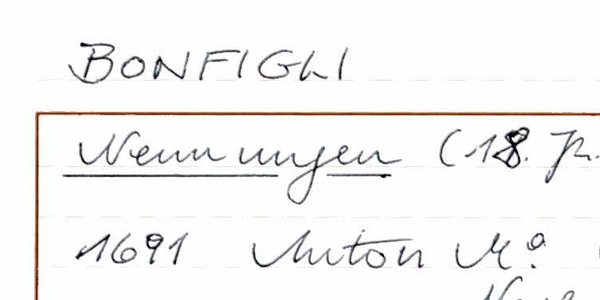 BONFIGLI
Nennungen (18. Jh.
1691 Anton Mª